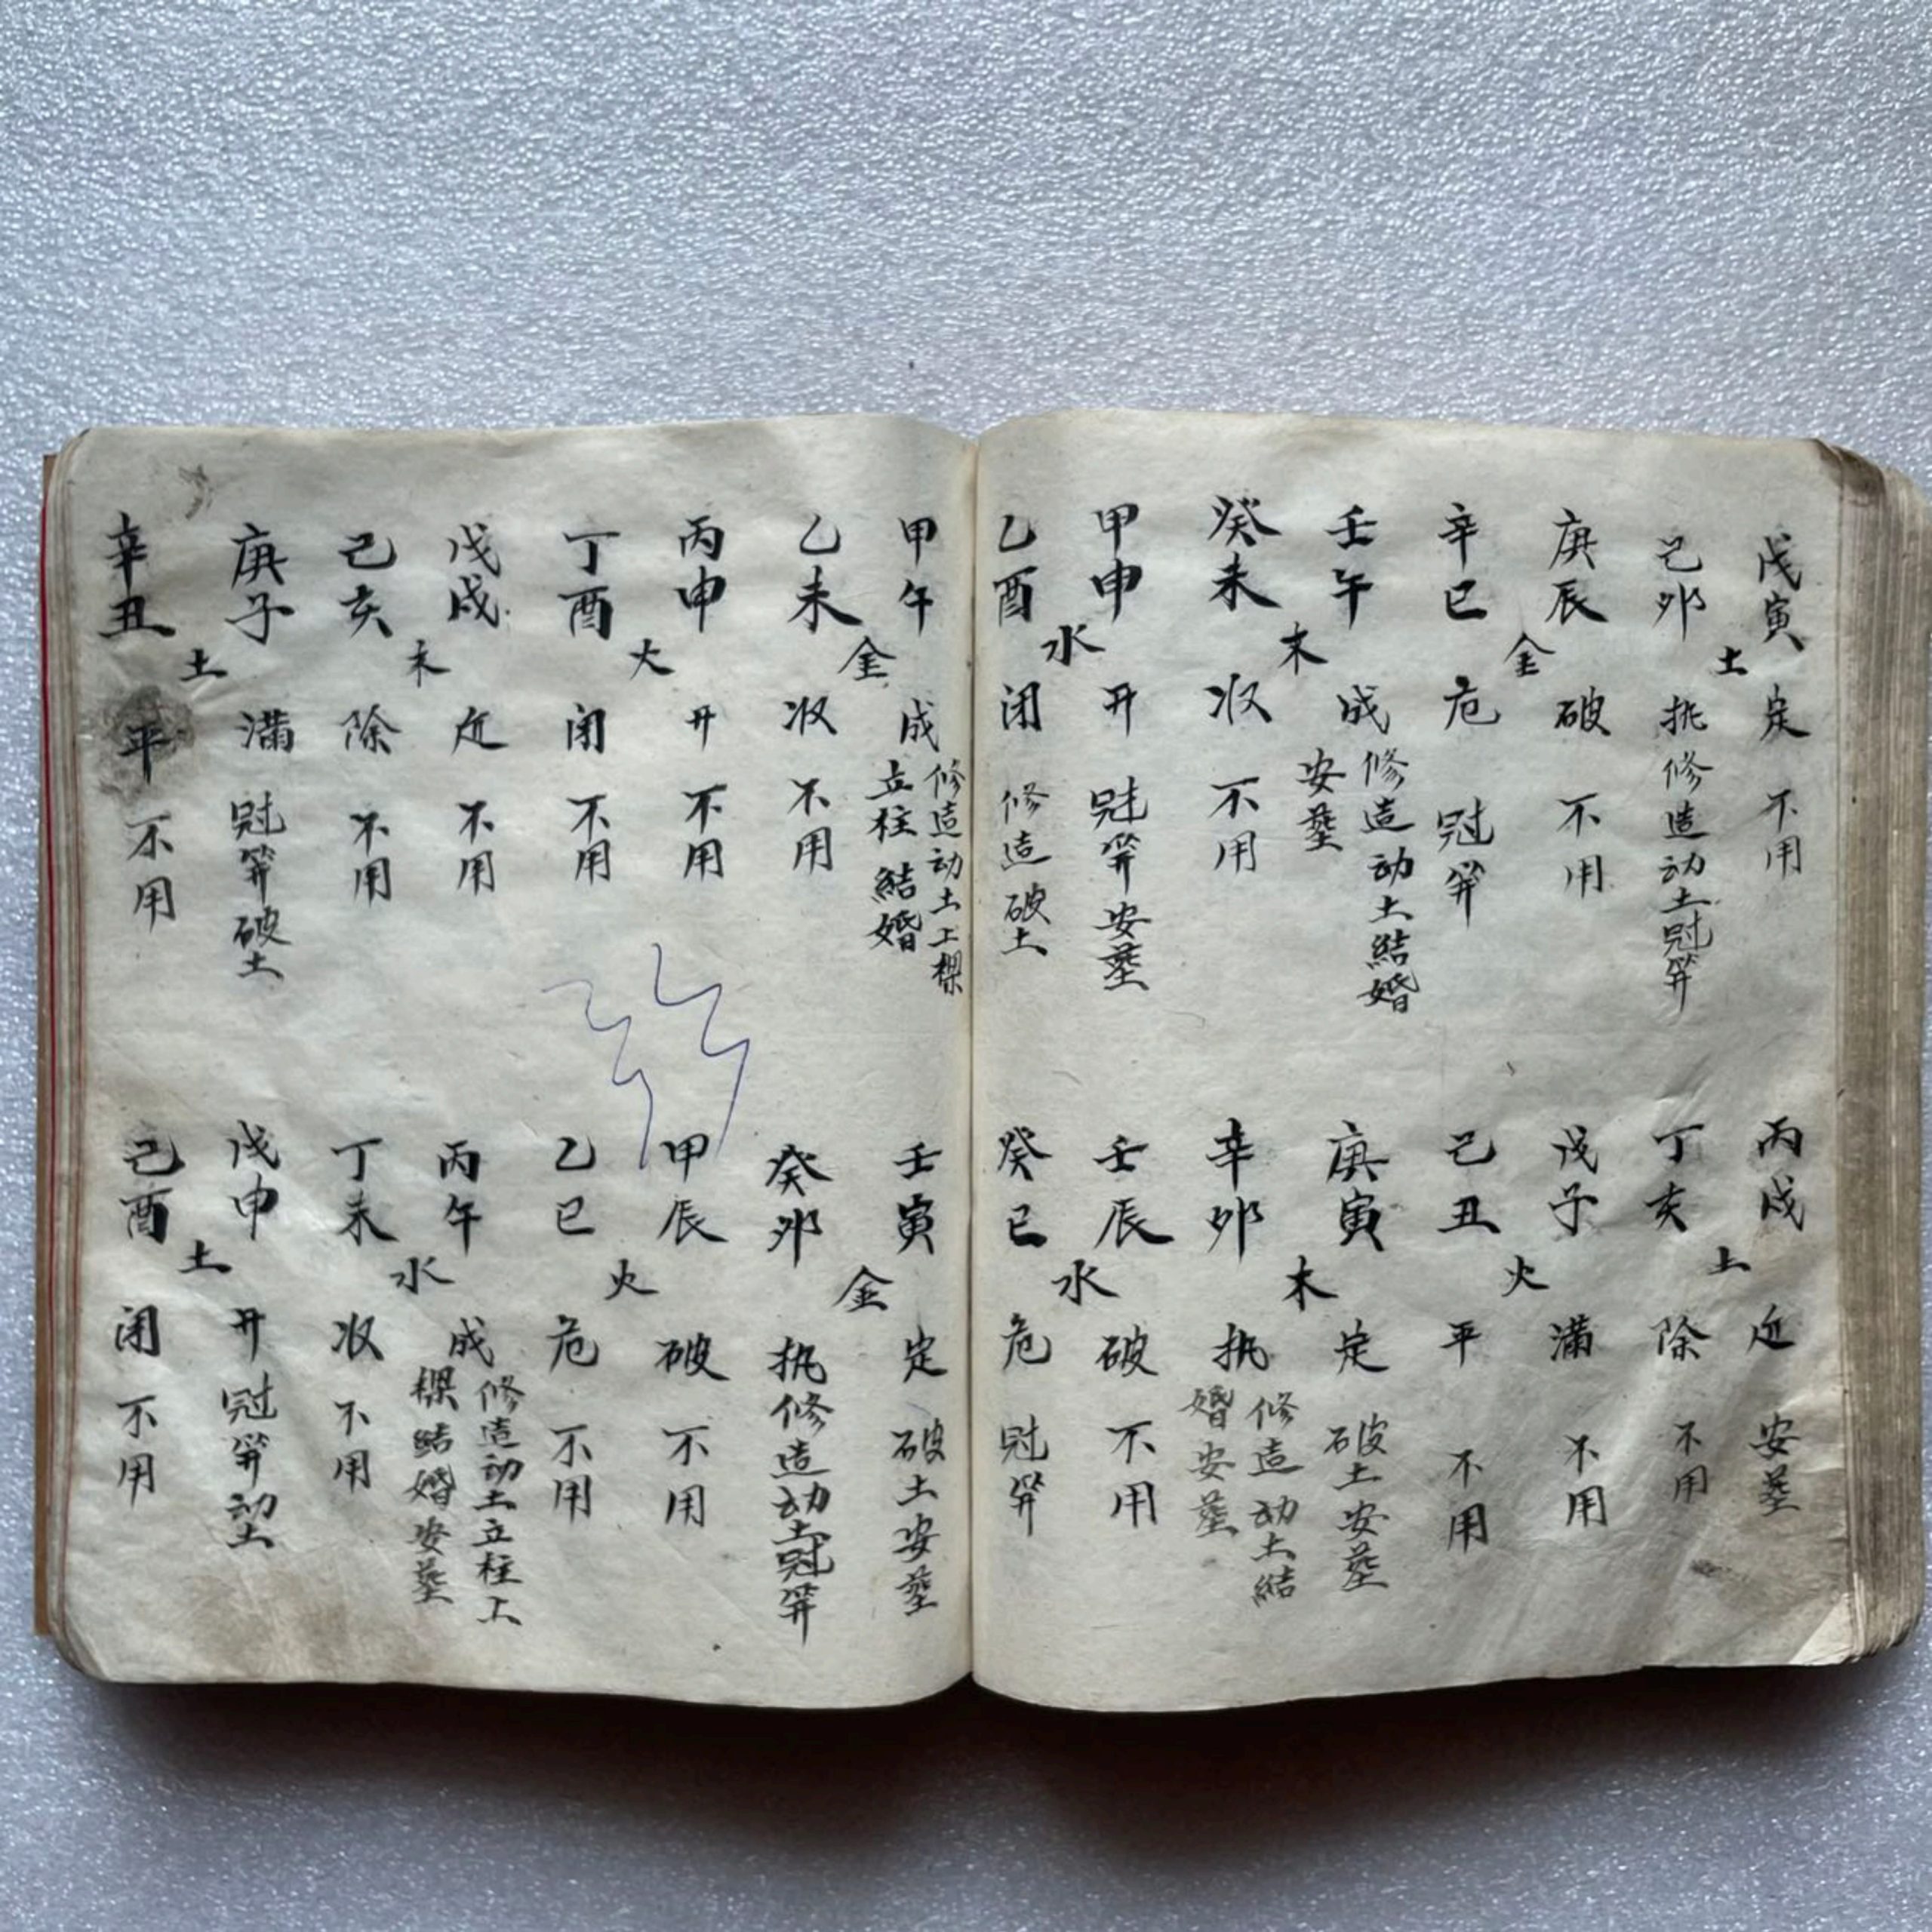 戊寅 定 不用
土
己卯 执 修造动土冠笄
庚辰 破 不用
金
辛巳 危 冠笄
壬午 成 修造动土結婚
安塟
木
癸未 收 不用
甲申 开 冠笄安塟
水
乙酉 闭 修造破土
丙戌 建 安塟
土
丁亥 除 不用
戊子 滿 不用
火
己丑 平 不用
庚寅 定 破土安塟
木
辛卯 执 修造动土結
婚安塟
壬辰 破 不用
水
癸巳 危 冠笄
甲午 成 修造动土上樑
立柱結婚
金
乙未 收 不用
丙申 开 不用
火
丁酉 闭 不用
戊戌 建 不用
木
己亥 除 不用
庚子 滿 冠笄破土
土
辛丑 平 不用
壬寅 定 破土安塟
金
癸卯 执 修造动土冠笄
甲辰 破 不用
火
乙巳 危 不用
丙午 成 修造动土立柱上
樑結婚安塟
水
丁未 收 不用
戊申 开 冠笄动土
土
己酉 闭 不用